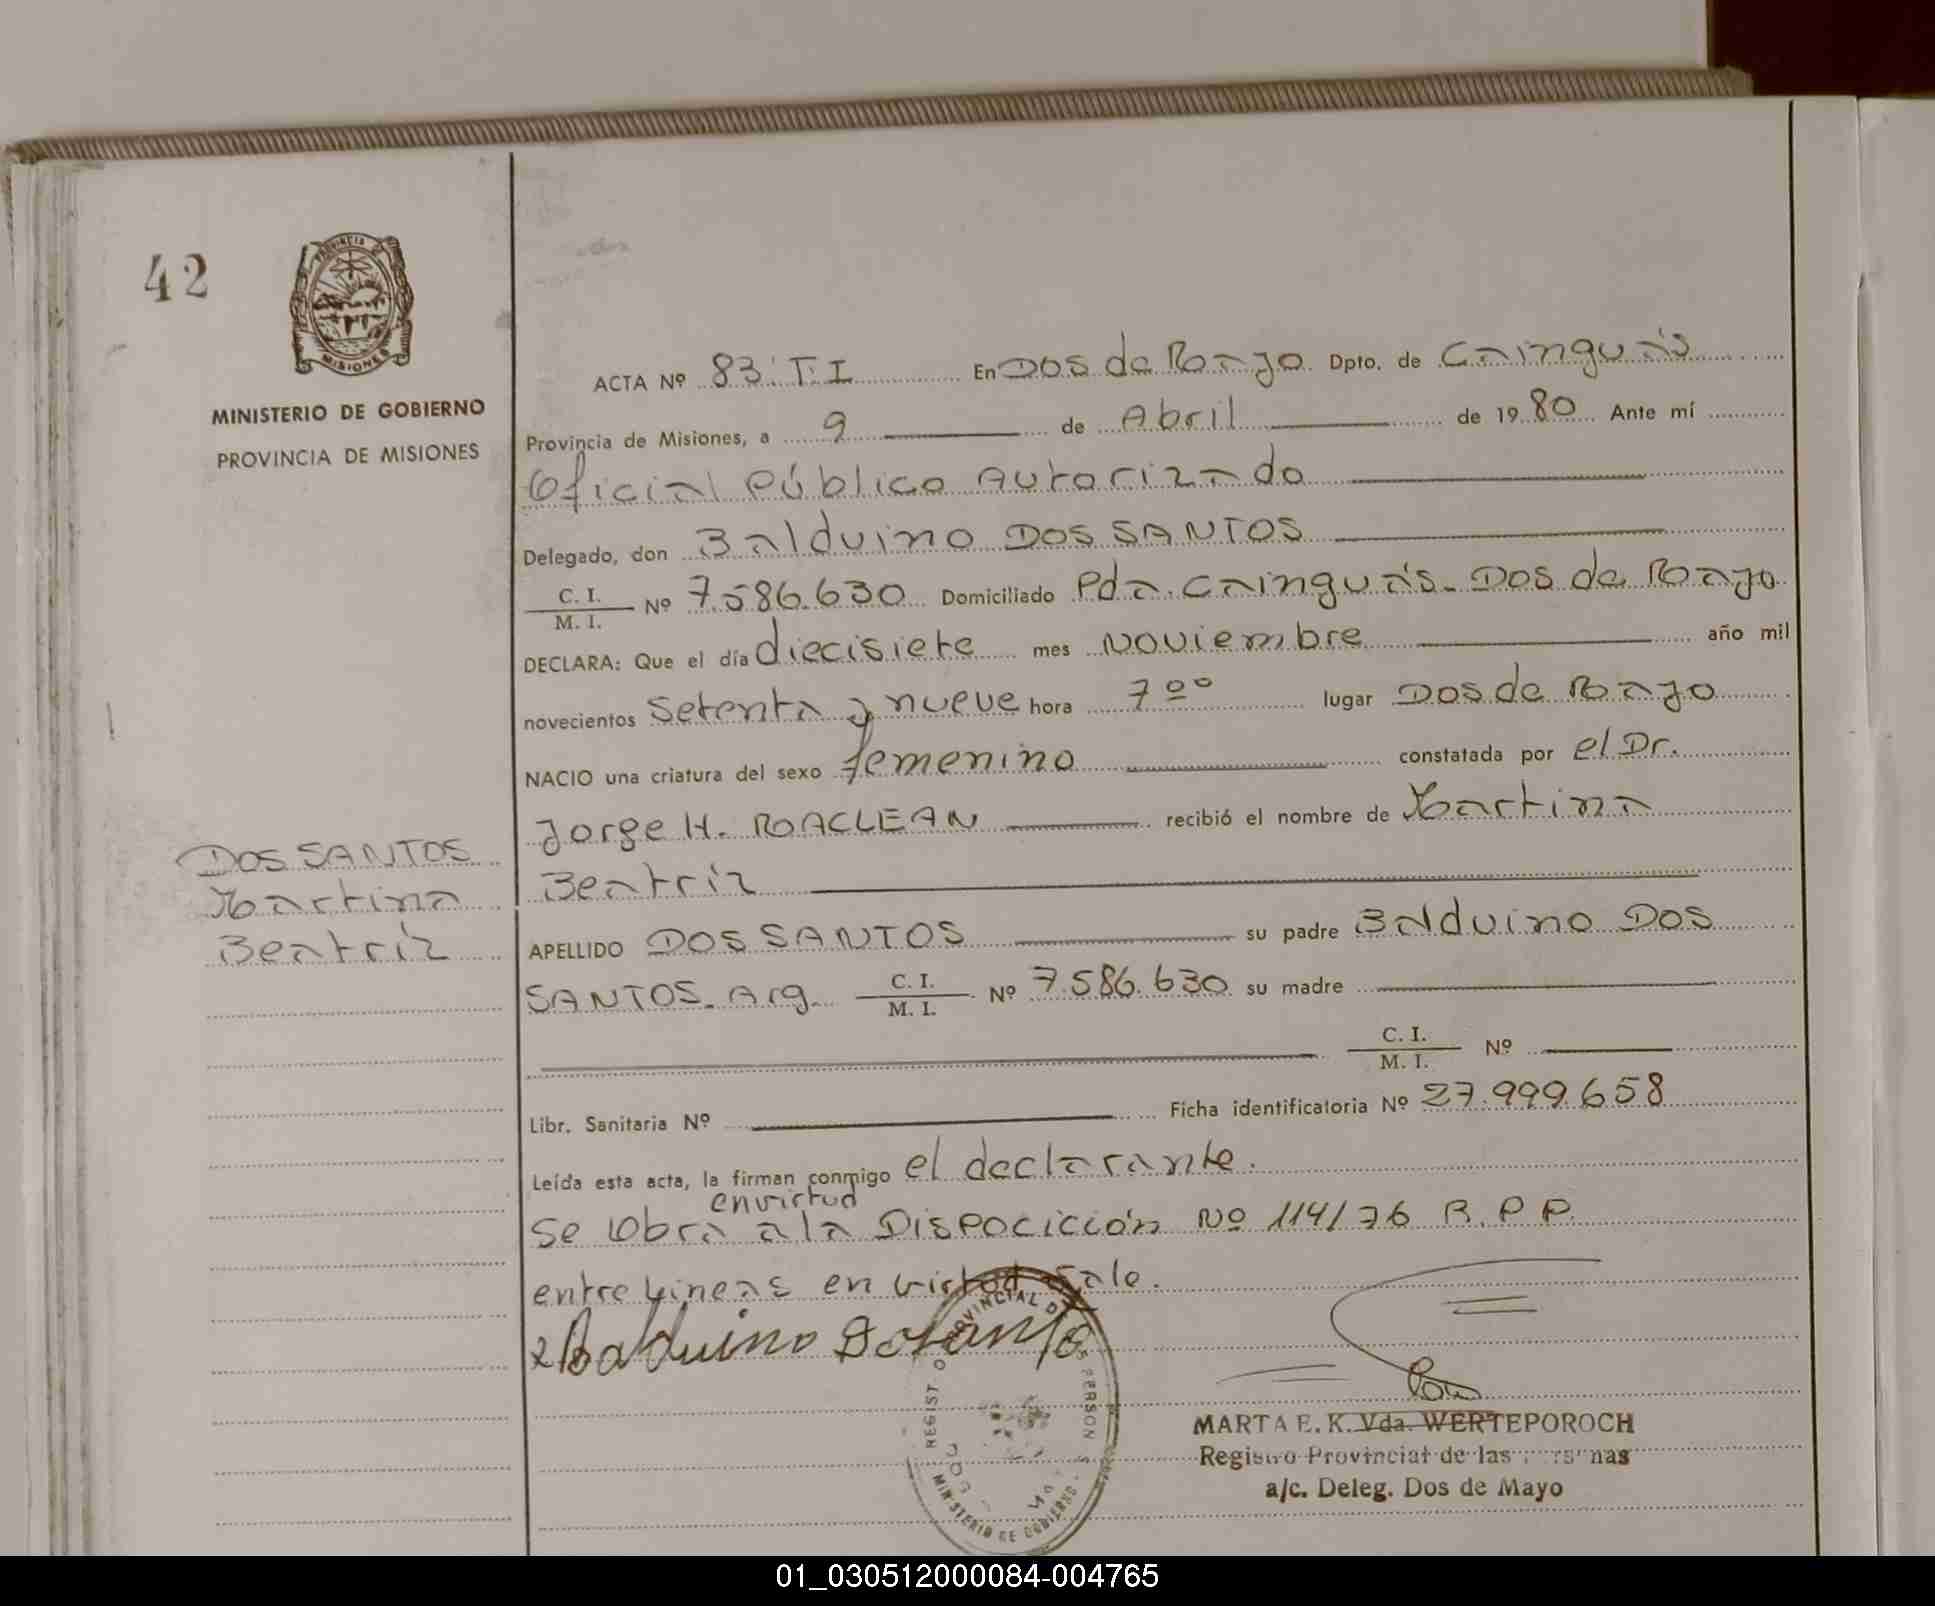 42
PROVINCIA
MISIONES
MINISTERIO DE GOBIERNO
PROVINCIA DE MISIONES
ACTA Nº 83 T. I En Dos de Mayo Dpto. de Cainguás
Provincia de Misiones, a 9 de Abril de 1980 Ante mí
Oficial Público Autorizado
Delegado, don Balduino DOS SANTOS
C. I.
M. I. Nº 7.586.630 Domiciliado Pda. Cainguás - Dos de Mayo
DECLARA: Que el día diecisiete mes Noviembre año mil
novecientos setenta y nueve hora 7 00 lugar Dos de Mayo
NACIO una criatura del sexo femenino constatada por el Dr.
Jorge H. MACLEAN recibió el nombre de Martina
Beatríz
DOS SANTOS
Martina
Beatríz
APELLIDO DOS SANTOS su padre Balduino DOS
SANTOS - Arg. C. I.
M. I. Nº 7.586.630 su madre
C. I.
M. I. Nº
Libr. Sanitaria Nº Ficha identificatoria Nº 27.999.658
Leída esta acta, la firman conmigo el declarante.
en virtud
se Obra a la Dispocición Nº 114/76 R. P. P.
entre líneas en virtud vale.
x Balduino Dosanto
REGIST O PROVINCIAL D S PERSON S
MINISTERIO DE GOBIERNO
MARTA E. K. Vda. WERTEPOROCH
Registro Provincial de las Personas
a/c. Deleg. Dos de Mayo
01_030512000084-004765